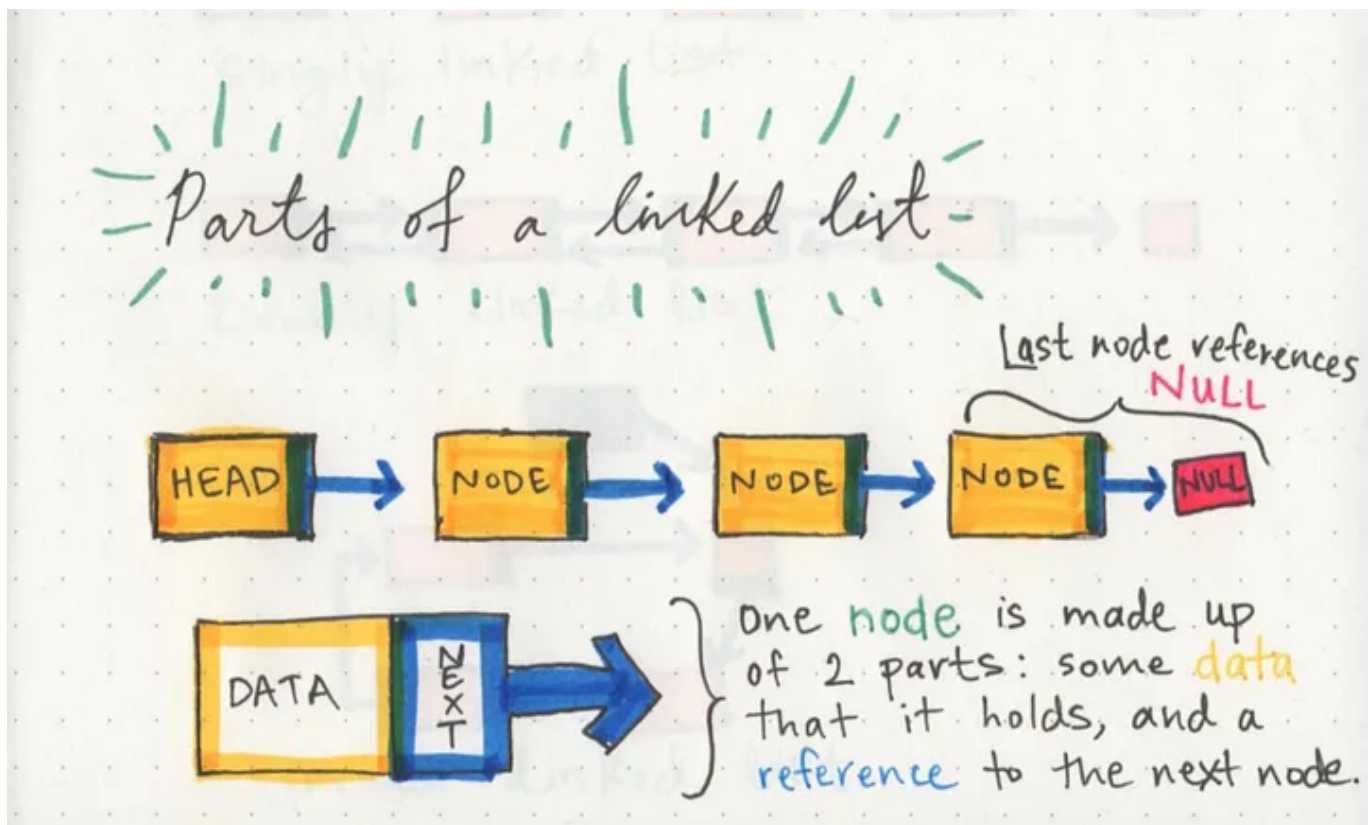 Singly linked list
Parts of a linked list
linked list
Last node references
NULL
HEAD NODE NODE NODE NULL
DATA NEXT
One node is made up
of 2 parts: some data
that it holds, and a
reference to the next node.
linked